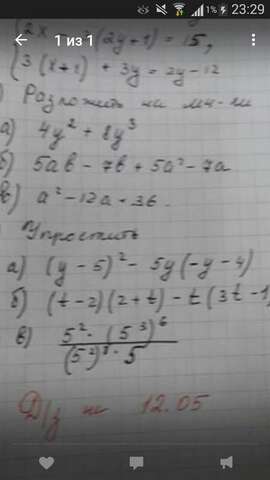 23:29
1%
1 из 1
(2y+1) = 15,
3 (x+1) + 3y = 2y - 12
Разложить на мн-ли
а) 4y² + 8y³
б) 5ab - 7b + 5a² - 7a
в) a² - 12a + 36.
Упростить
а) (y - 5)² - 5y (-y - 4)
б) (t - 2)(2 + t) - t (3t - 1
в) 5² · (5³)⁶
(5²)⁸ · 5
Д/з на 12.05